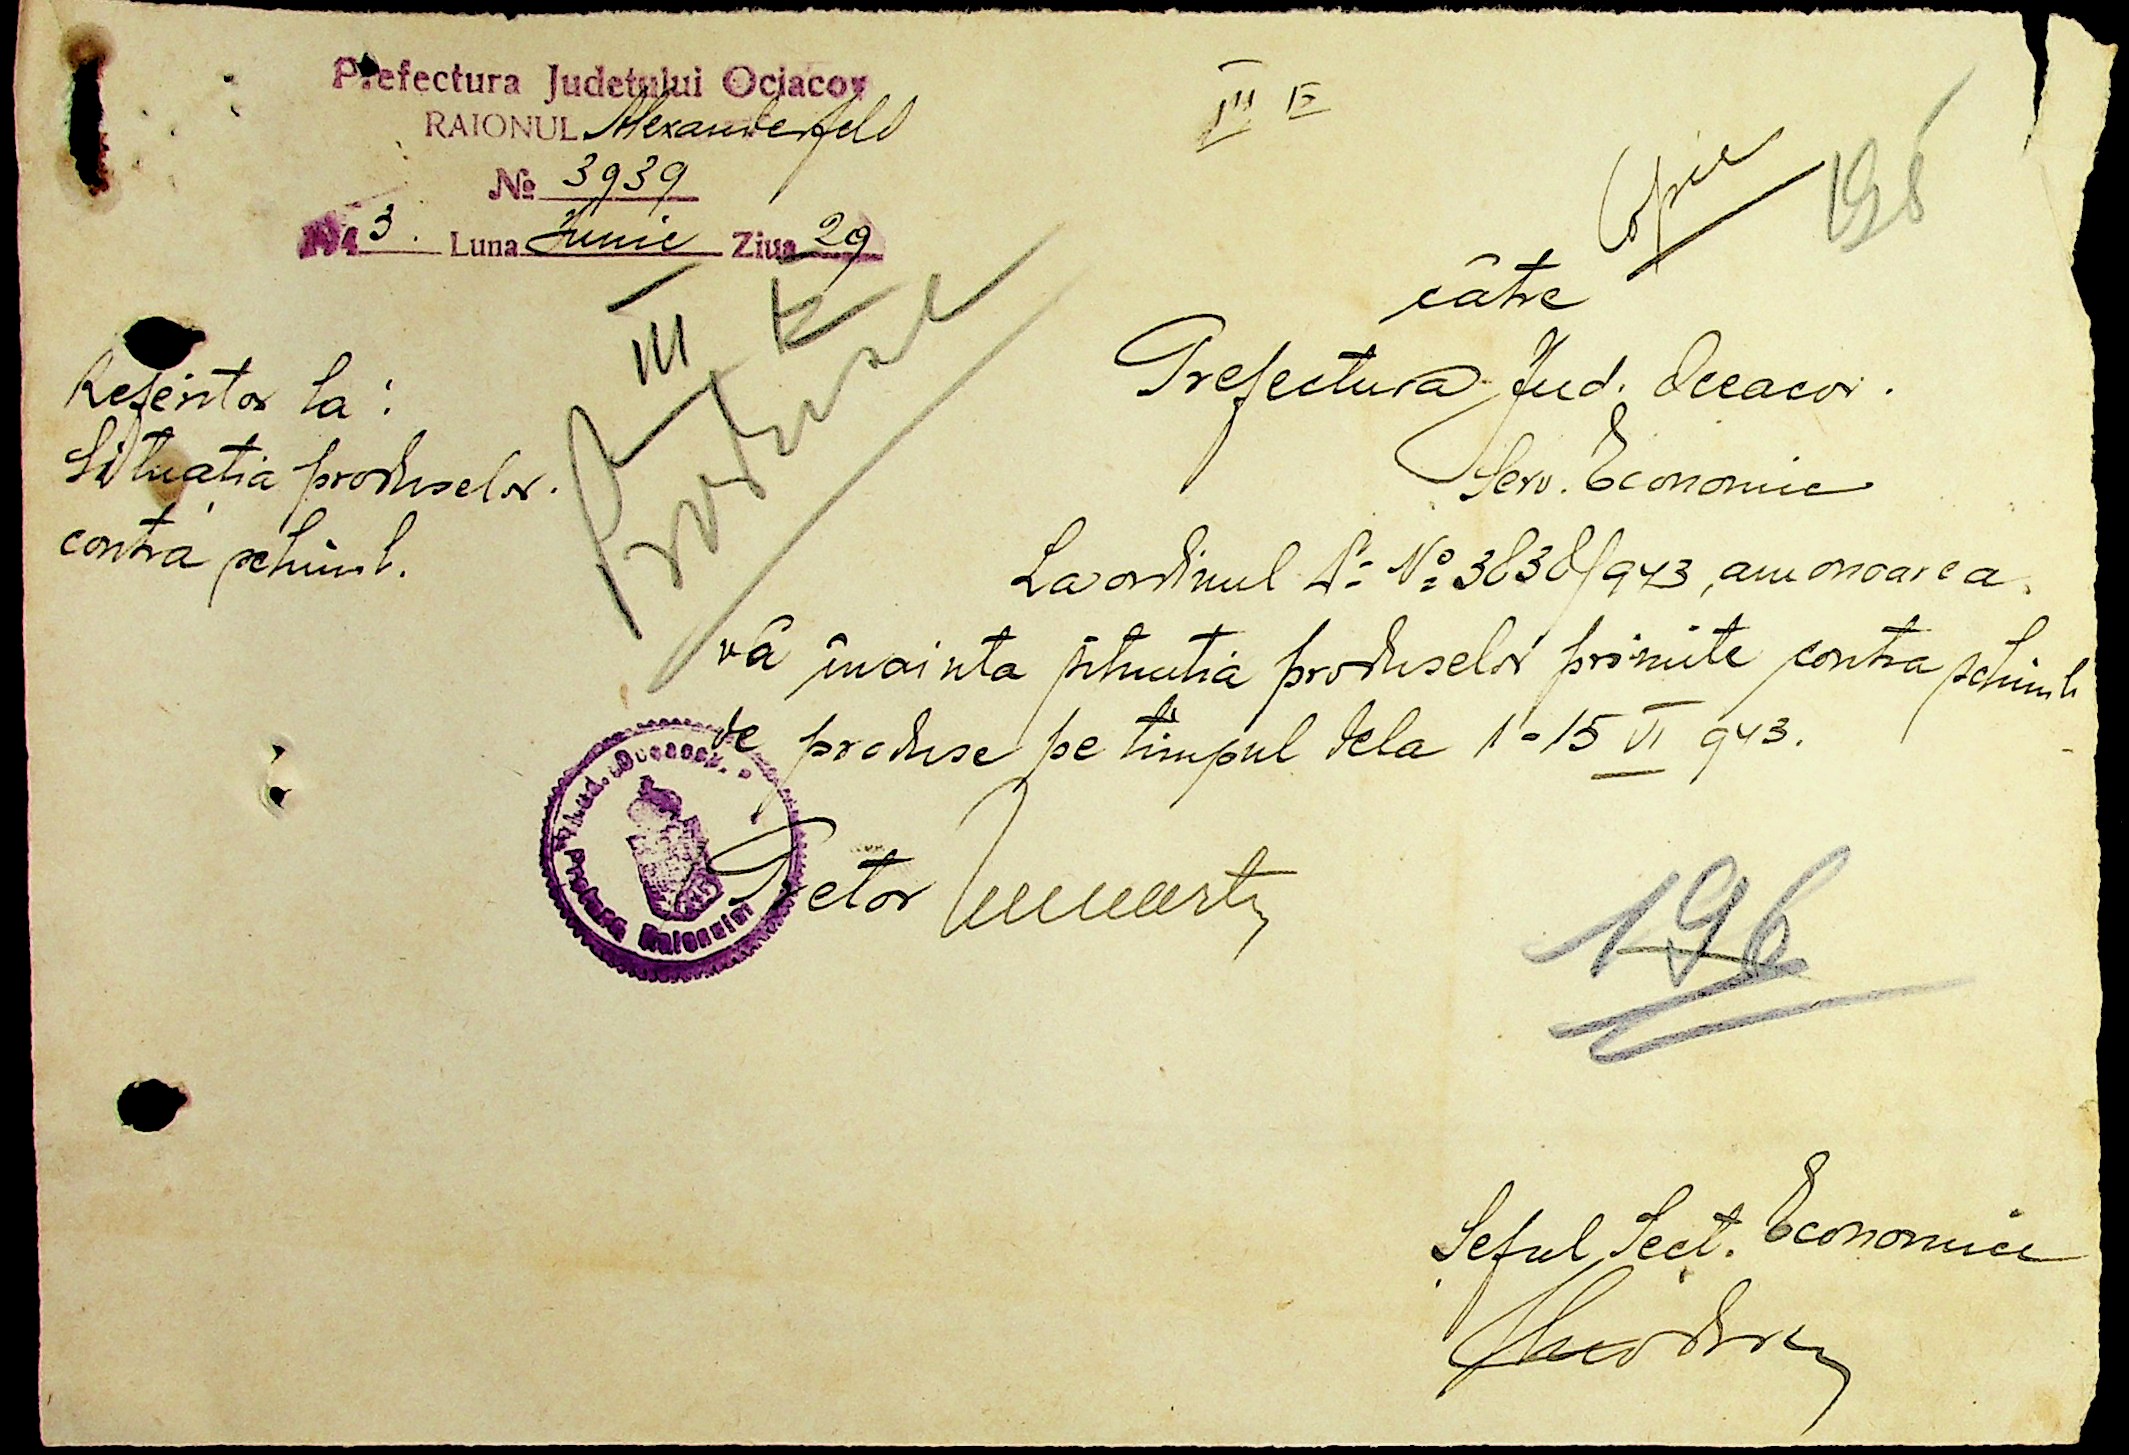 Prefectura Judetului Ociacov
RAIONUL Alexanderfeld
№ 3939
1943. Luna Iunie Ziua 29
III E
Copie
196
către
Prefectura Jud. Oceacov.
Serv. Economic
III E
Produse
Referitor la:
Situatia produselor
contra schimb.
La ordinul Dv. No 3838/943, am onoarea
vă înainta situatia produselor primite contra schimb
de produse pe timpul dela 1-15 VI 943.
Jud. Oceacov
Pretura Raionului
Pretor
196
Seful Sect. Economic